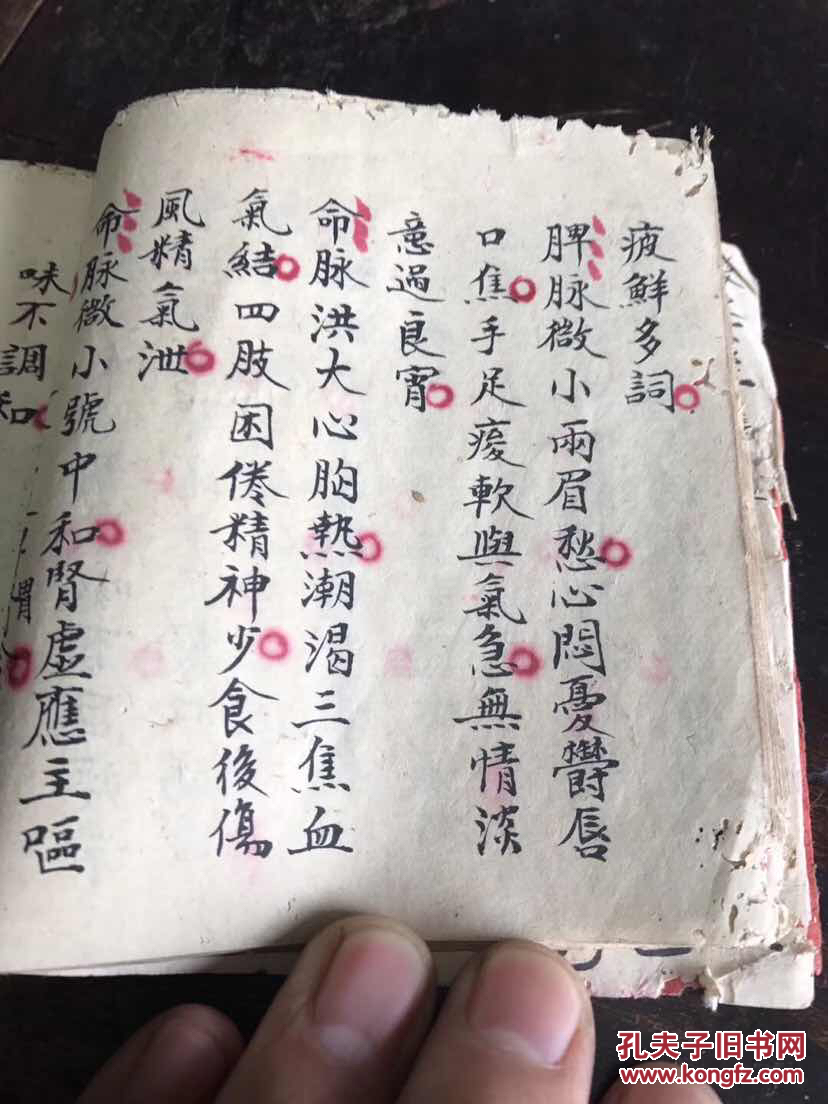 疲鮮多詞
脾脉微小兩眉愁心悶憂欝唇
口焦手足痠軟與氣急無情淡
意過良宵
命脉洪大心胸熱潮渴三焦血
氣結四肢困倦精神少食後傷
風精氣泄
命脉微小號中和腎虛應主嘔
味不調和
孔夫子旧书网
www.kongfz.com